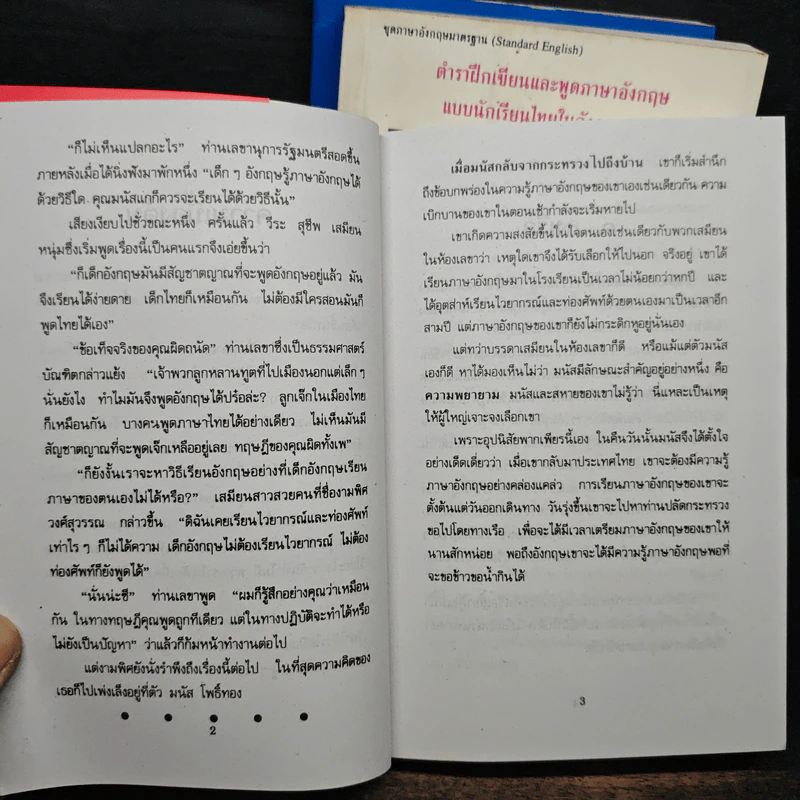 ชุดภาษาอังกฤษมาตรฐาน (Standard English)
ตำราฝึกเขียนและพูดภาษาอังกฤษ
แบบนักเรียนไทยใน
“ก็ไม่เห็นแปลกอะไร” ท่านเลขานุการรัฐมนตรีสอดขึ้น
ภายหลังเมื่อได้นิ่งฟังมาพักหนึ่ง “เด็ก ๆ อังกฤษรู้ภาษาอังกฤษได้
ด้วยวิธีใด คุณมนัสแกก็ควรจะเรียนได้ด้วยวิธีนั้น”
เสียงเงียบไปชั่วขณะหนึ่ง ครั้นแล้ว วีระ สุชีพ เสมียน
หนุ่มซึ่งเริ่มพูดเรื่องนี้เป็นคนแรกจึงเอ่ยขึ้นว่า
“ก็เด็กอังกฤษมันมีสัญชาตญาณที่จะพูดอังกฤษอยู่แล้ว มัน
จึงเรียนได้ง่ายดาย เด็กไทยก็เหมือนกัน ไม่ต้องมีใครสอนมันก็
พูดไทยได้เอง”
“ข้อเท็จจริงของคุณผิดถนัด” ท่านเลขาซึ่งเป็นธรรมศาสตร์
บัณฑิตกล่าวแย้ง “เจ้าพวกลูกหลานทูตที่ไปเมืองนอกแต่เล็ก ๆ
นั่นยังไง ทำไมมันจึงพูดอังกฤษได้ปร๋อล่ะ? ลูกเจ๊กในเมืองไทย
ก็เหมือนกัน บางคนพูดภาษาไทยได้อย่างเดียว ไม่เห็นมันมี
สัญชาตญาณที่จะพูดเจ๊กเหลืออยู่เลย ทฤษฎีของคุณผิดทั้งเพ”
“ก็ยังงั้นเราจะหาวิธีเรียนอังกฤษอย่างที่เด็กอังกฤษเรียน
ภาษาของตนเองไม่ได้หรือ?” เสมียนสาวสวยคนที่ชื่องามพิศ
วงศ์สุวรรณ กล่าวขึ้น “ดิฉันเคยเรียนไวยากรณ์และท่องศัพท์
เท่าไร ๆ ก็ไม่ได้ความ เด็กอังกฤษไม่ต้องเรียนไวยากรณ์ ไม่ต้อง
ท่องศัพท์ก็ยังพูดได้”
“นั่นน่ะซี” ท่านเลขาพูด “ผมก็รู้สึกอย่างคุณว่าเหมือน
กัน ในทางทฤษฎีคุณพูดถูกทีเดียว แต่ในทางปฏิบัติจะทำได้หรือ
ไม่ยังเป็นปัญหา” ว่าแล้วก็ก้มหน้าทำงานต่อไป
แต่งามพิศยังนั่งรำพึงถึงเรื่องนี้ต่อไป ในที่สุดความคิดของ
เธอก็ไปเพ่งเล็งอยู่ที่ตัว มนัส โพธิ์ทอง
● ● ● ● ●
2
เมื่อมนัสกลับจากกระทรวงไปถึงบ้าน เขาก็เริ่มสำนึก
ถึงข้อบกพร่องในความรู้ภาษาอังกฤษของเขาเองเช่นเดียวกัน ความ
เบิกบานของเขาในตอนเช้ากำลังจะเริ่มหายไป
เขาเกิดความสงสัยขึ้นในใจตนเองเช่นเดียวกับพวกเสมียน
ในห้องเลขาว่า เหตุใดเขาจึงได้รับเลือกให้ไปนอก จริงอยู่ เขาได้
เรียนภาษาอังกฤษมาในโรงเรียนเป็นเวลาไม่น้อยกว่าหกปี และ
ได้อุตส่าห์เรียนไวยากรณ์และท่องศัพท์ด้วยตนเองมาเป็นเวลาอีก
สามปี แต่ภาษาอังกฤษของเขาก็ยังไม่กระดิกหูอยู่นั่นเอง
แต่ทว่าบรรดาเสมียนในห้องเลขาก็ดี หรือแม้แต่ตัวมนัส
เองก็ดี หาได้มองเห็นไม่ว่า มนัสมีลักษณะสำคัญอยู่อย่างหนึ่ง คือ
ความพยายาม มนัสและสหายของเขาไม่รู้ว่า นี่แหละเป็นเหตุ
ให้ผู้ใหญ่เจาะจงเลือกเขา
เพราะอุปนิสัยพากเพียรนี้เอง ในคืนวันนั้นมนัสจึงได้ตั้งใจ
อย่างเด็ดเดี่ยวว่า เมื่อเขากลับมาประเทศไทย เขาจะต้องมีความรู้
ภาษาอังกฤษอย่างคล่องแคล่ว การเรียนภาษาอังกฤษของเขาจะ
ตั้งต้นแต่วันออกเดินทาง วันรุ่งขึ้นเขาจะไปหาท่านปลัดกระทรวง
ขอไปโดยทางเรือ เพื่อจะได้มีเวลาเตรียมภาษาอังกฤษของเขาให้
นานสักหน่อย พอถึงอังกฤษเขาจะได้มีความรู้ภาษาอังกฤษพอที่
จะขอข้าวขอน้ำกินได้
3